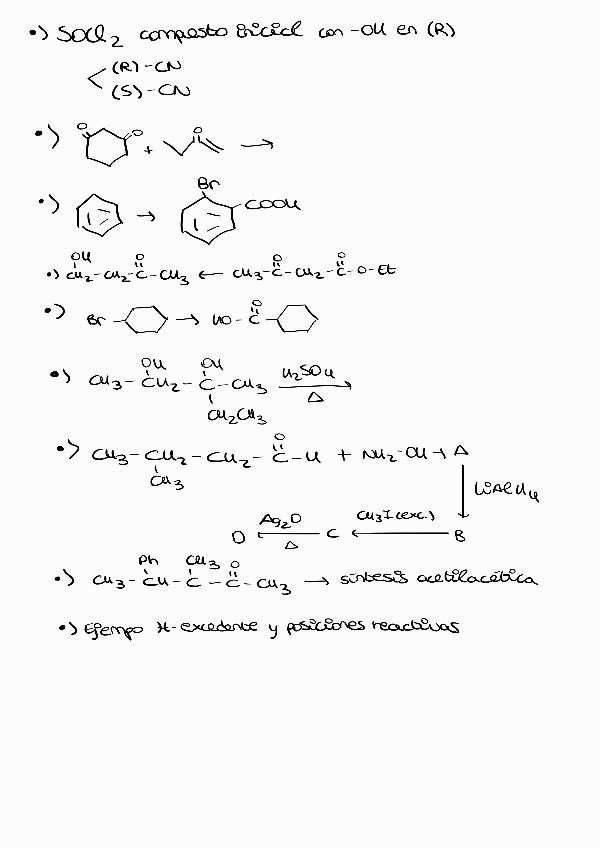 •) SOCl2 compuesto inicial con -OH en (R)
(R)-CN
(S)-CN
•) O O + O →
•) → Br COOH
•) OH CH2-CH2-C(=O)-CH3 ← CH3-C(=O)-CH2-C(=O)-O-Et
•) Br → HO-C(=O)
•) CH3-CH2(OH)-C(OH)(CH2CH3)-CH3 H2SO4 Δ
•) CH3-CH2(CH3)-CH2-C(=O)-H + NH2-OH → A
LiAlH4
D Ag2O Δ ← C CH3I (exc.) ← B
•) CH3-CH(Ph)-C(CH3)-C(=O)-CH3 → síntesis acetilacética
•) Ejempo π-excedente y posiciones reactivas